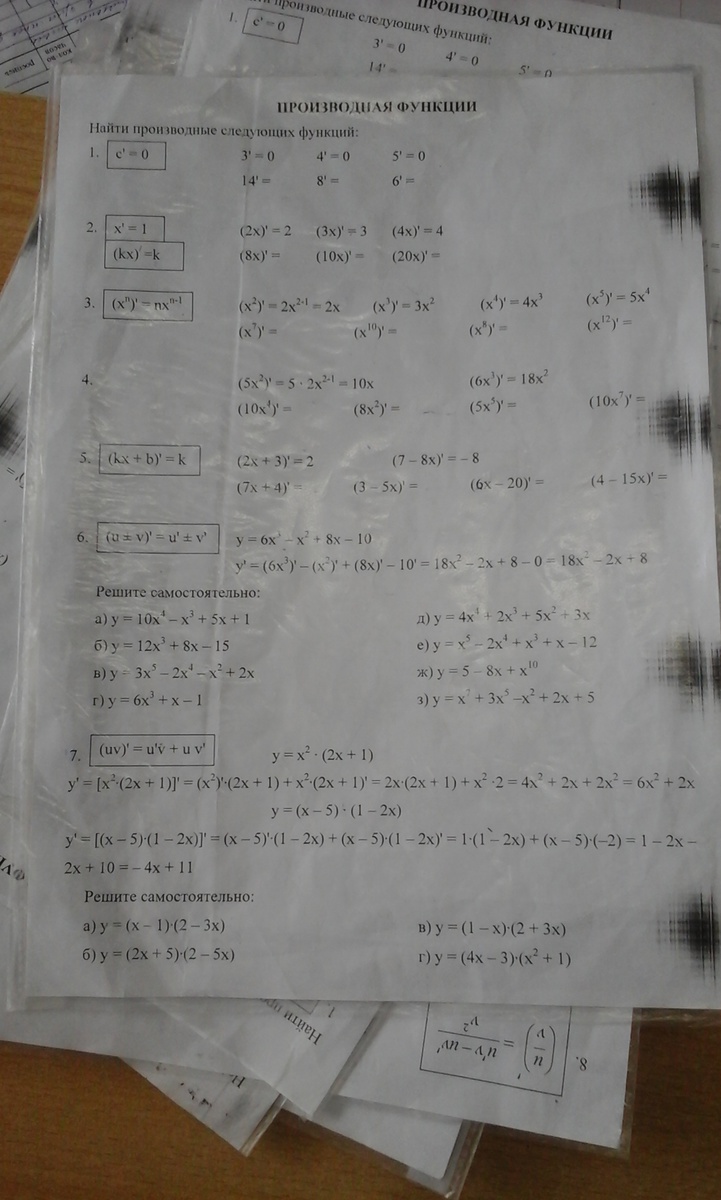 ПРОИЗВОДНАЯ ФУНКЦИИ
производные следующих функций:
1. c' = 0 3' = 0 4' = 0
14' =
ПРОИЗВОДНАЯ ФУНКЦИИ
Найти производные следующих функций:
1. c' = 0 3' = 0 4' = 0 5' = 0
14' = 8' = 6' =
2. x' = 1 (2x)' = 2 (3x)' = 3 (4x)' = 4
(kx)' = k (8x)' = (10x)' = (20x)' =
3. (xⁿ)' = nxⁿ⁻¹ (x²)' = 2x²⁻¹ = 2x (x³)' = 3x² (x⁴)' = 4x³ (x⁵)' = 5x⁴
(x⁷)' = (x¹⁰)' = (x⁸)' = (x¹²)' =
4. (5x²)' = 5 · 2x²⁻¹ = 10x (6x³)' = 18x²
(10x⁴)' = (8x²)' = (5x⁵)' = (10x⁷)' =
5. (kx + b)' = k (2x + 3)' = 2 (7 – 8x)' = – 8
(7x + 4)' = (3 – 5x)' = (6x – 20)' = (4 – 15x)' =
6. (u ± v)' = u' ± v' y = 6x³ – x² + 8x – 10
y' = (6x³)' – (x²)' + (8x)' – 10' = 18x² – 2x + 8 – 0 = 18x² – 2x + 8
Решите самостоятельно:
а) y = 10x⁴ – x³ + 5x + 1 д) y = 4x⁴ + 2x³ + 5x² + 3x
б) y = 12x³ + 8x – 15 е) y = x⁵ – 2x⁴ + x³ + x – 12
в) y = 3x⁵ – 2x⁴ – x² + 2x ж) y = 5 – 8x + x¹⁰
г) y = 6x³ + x – 1 з) y = x⁷ + 3x⁵ –x² + 2x + 5
7. (uv)' = u'v + u v' y = x² · (2x + 1)
y' = [x²·(2x + 1)]' = (x²)'·(2x + 1) + x²·(2x + 1)' = 2x·(2x + 1) + x² ·2 = 4x² + 2x + 2x² = 6x² + 2x
y = (x – 5) · (1 – 2x)
y' = [(x – 5)·(1 – 2x)]' = (x – 5)'·(1 – 2x) + (x – 5)·(1 – 2x)' = 1·(1 – 2x) + (x – 5)·(–2) = 1 – 2x –
2x + 10 = – 4x + 11
Решите самостоятельно:
а) y = (x – 1)·(2 – 3x) в) y = (1 – x)·(2 + 3x)
б) y = (2x + 5)·(2 – 5x) г) y = (4x – 3)·(x² + 1)
1.
Найти
8. (u/v)' = (u'v – uv')/v²